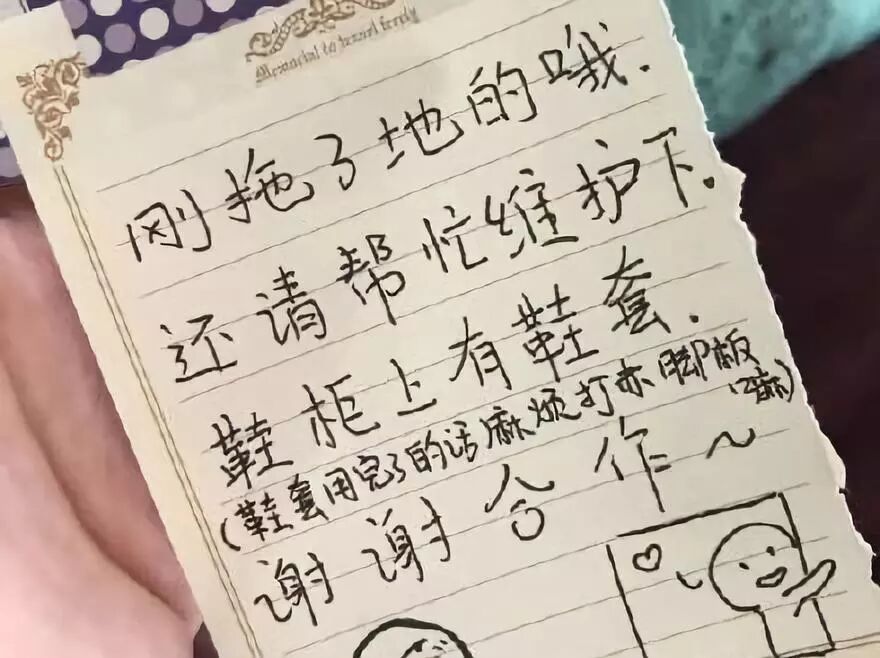 刚拖了地的哦.
还请帮忙维护下.
鞋柜上有鞋套.
(鞋套用完了的话麻烦打赤脚板
嘛)
谢谢合作~